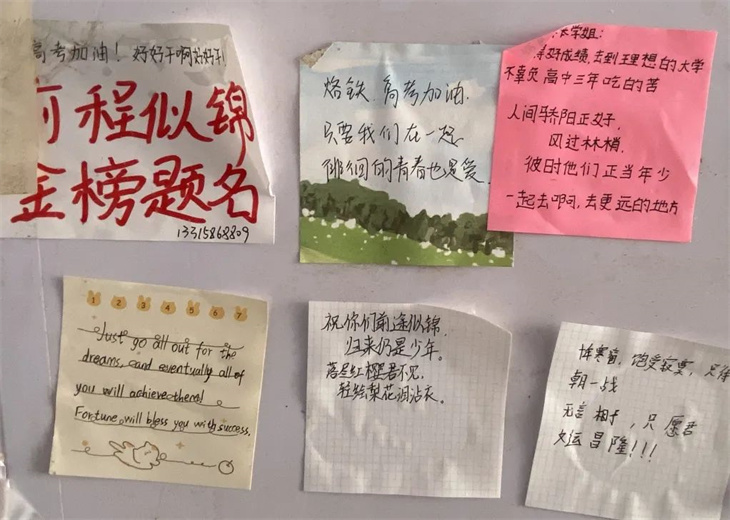 高考加油！好好干啊好好干！
前程似锦
金榜题名
13315868809
烙铁．高考加油．
只要我们在一起
徘徊的青春也是爱．
学姐：
得好成绩，去到理想的大学
不辜负高中三年吃的苦
人间骄阳正好，
风过林梢，
彼时他们正当年少
一起去啊，去更远的地方
1 2 3 4 5 6 7
Just go all out for the
dreams, and eventually all of
you will achieve them!
Fortune will bless you with success.
祝你们前途似锦．
归来仍是少年。
落尽红樱君不见，
轻绘梨花泪沾衣．
寒窗，饱受寂寞，只待
朝一战
无言相予，只愿君
文运昌隆！！！